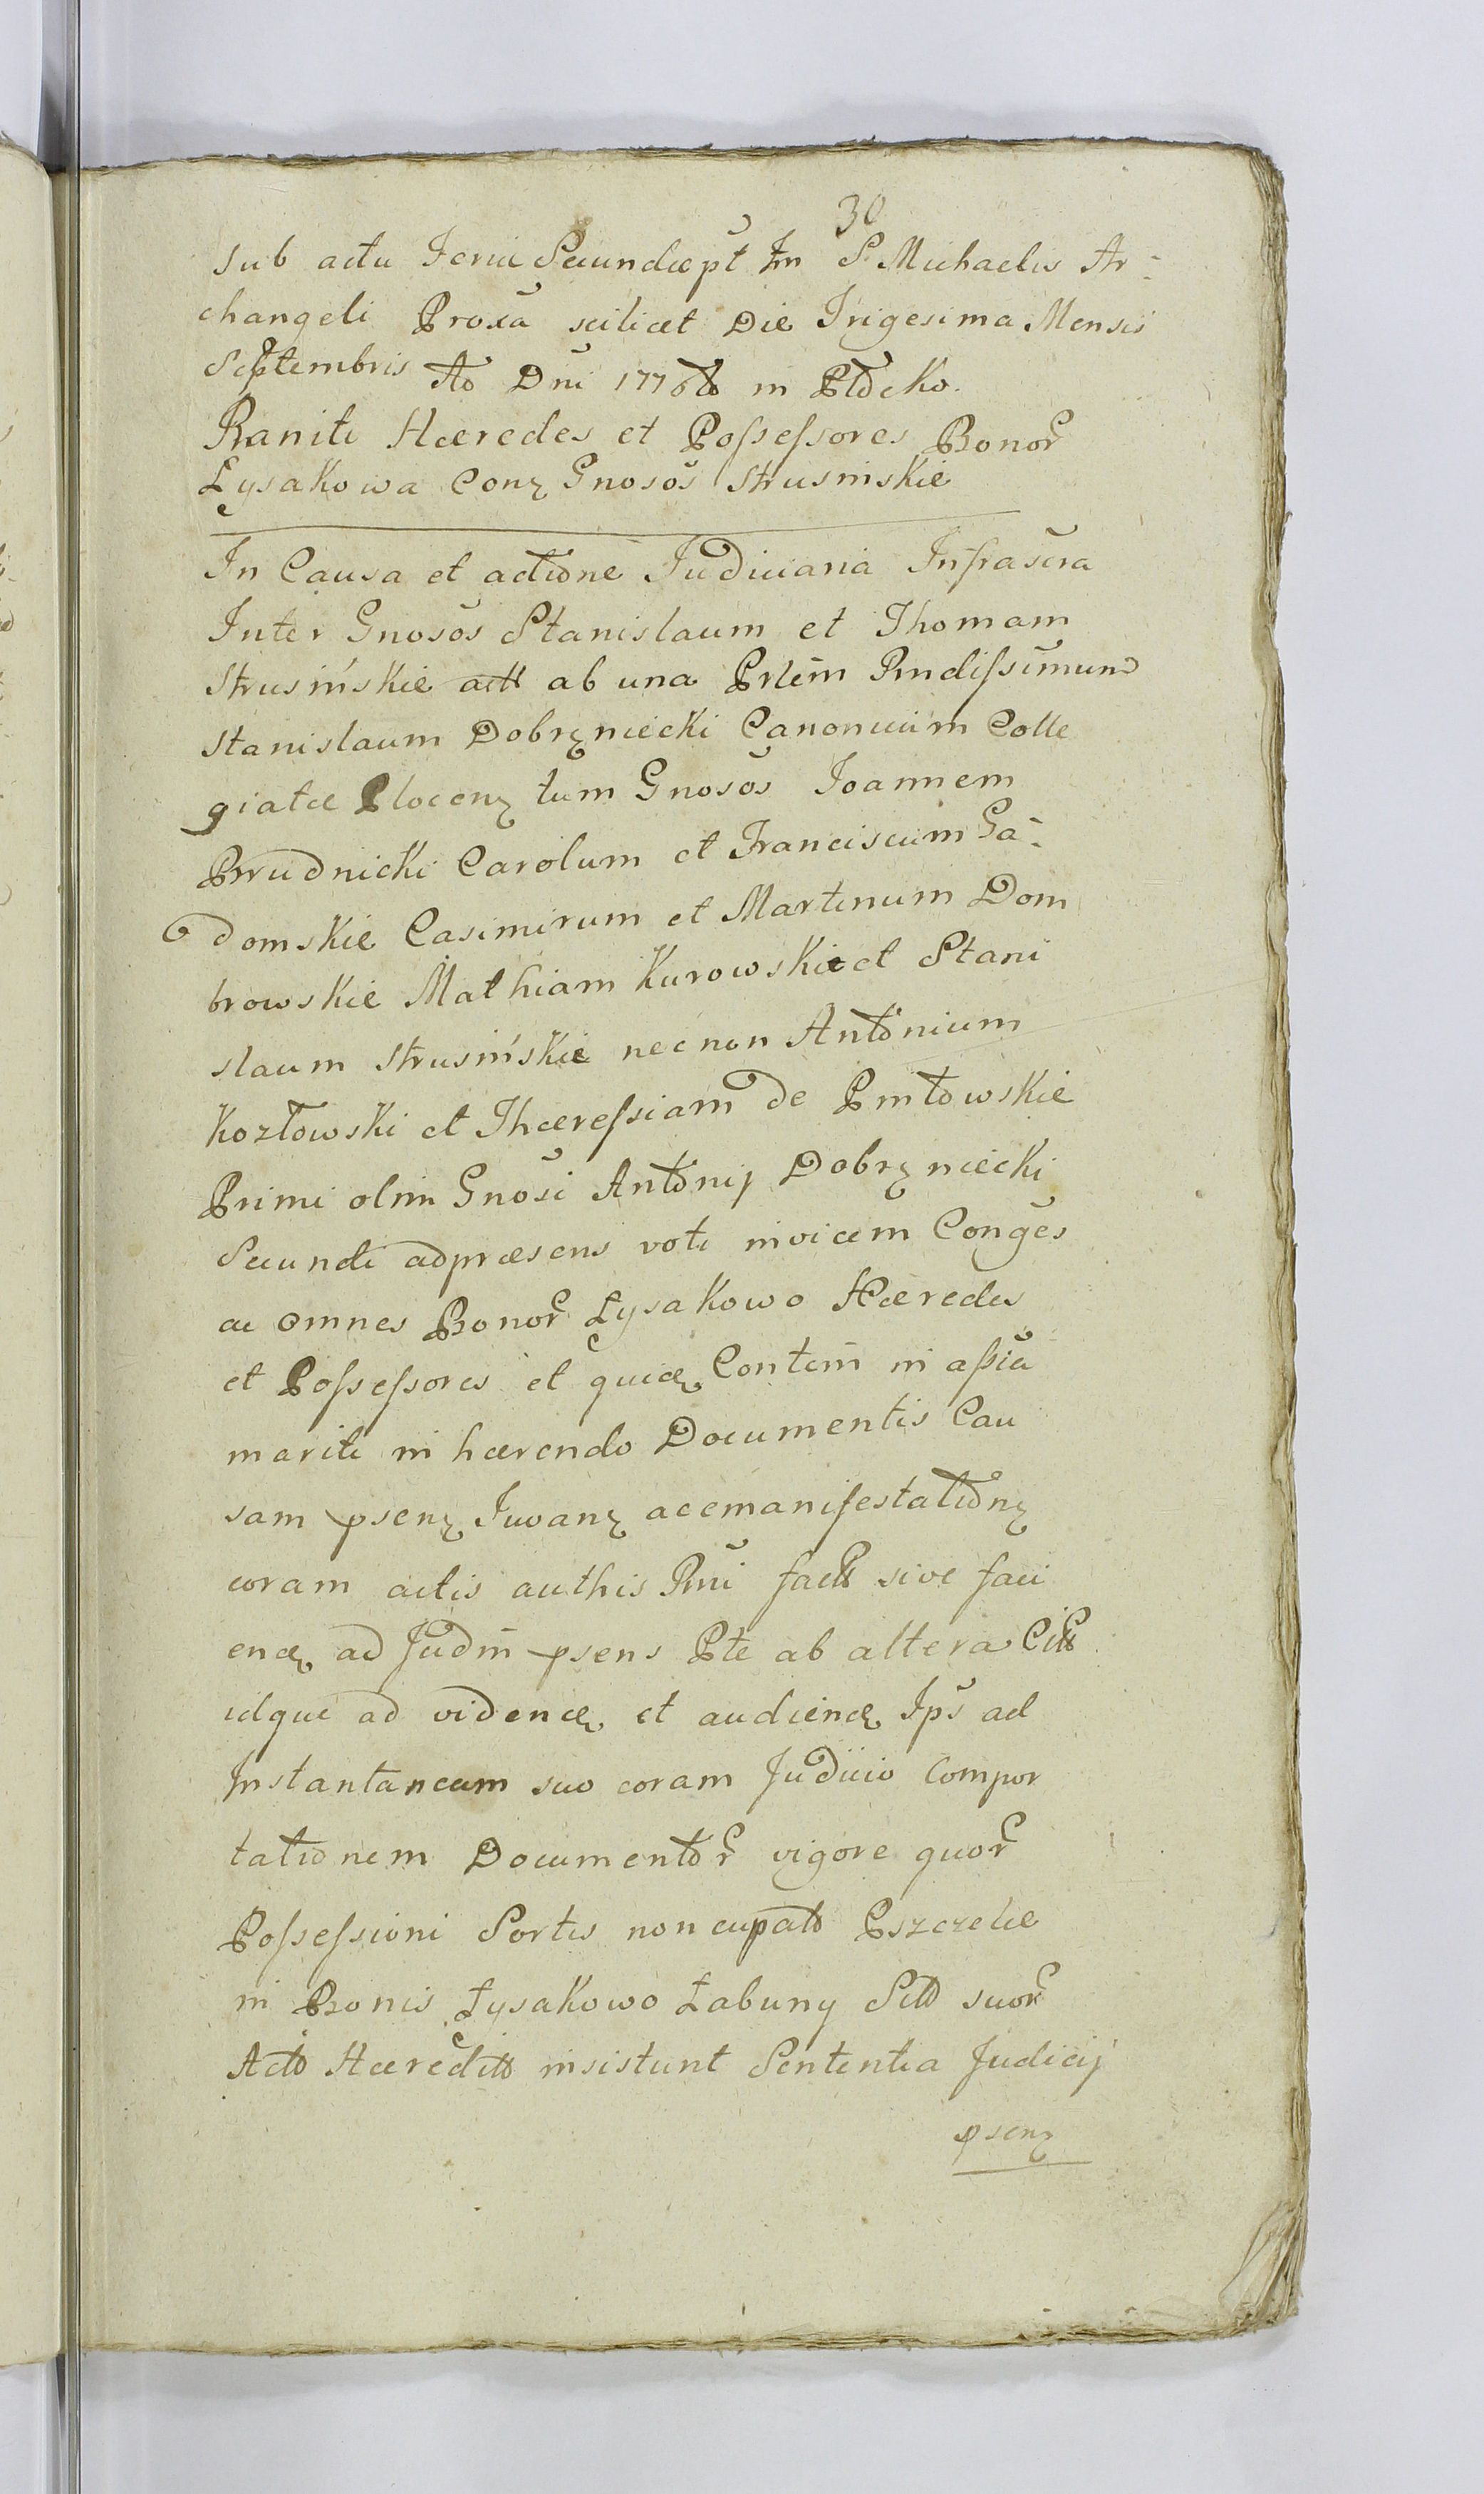 30
Sub actu Feriæ Secundæ pt Fm S. Michaelis Ar-
changeli Proxa scilicet Die Trigesima Mensis
Septembris Ao Dni 1776to in Plocko.
Raniti Hæredes et Possessores Bonor
Łysakowa Conz Gnosos Strusinskie
In Causa et actione Judiciaria Infrascra
Inter Gnosos Stanislaum et Thomam
Strusińskie act ab una Prtem Rndissimum
Stanislaum Dobrzniecki Canonicum Colle
giatæ Plocenz tum Gnosos Joannem
Prudnicki Carolum et Franciscum Ga-
domskie Casimirum et Martinum Dom
browskie Mathiam Kurowskie et Stani
slaum Strusińskie nec non Antonium
Kozłowski et Thæressiam de Pniłowskie
Primi olim Gnosi Antonij Dobrzniecki
Secundi adpræsens voti invicem Conges
ac omnes Bonor Łysakowo Hæredes
et Possessores et quidz Contem in assia
mariti in hærendo Documentis Cau
sam psenz Juvanz ac emanifestationz
coram actis authis Rmi fact sive faci
endz ad Judm psens Pte ab altera Citt
idque ad videndz et audiendz Ips ad
Instantaneam suo coram Judicio Compor
tationem Documentor vigore quor
Possessioni Sortis noncupato Pszczelie
in Bonis Łysakowo Łabuny Sito suor
Acto Hæredito insistunt Sententia Judicij
psenz